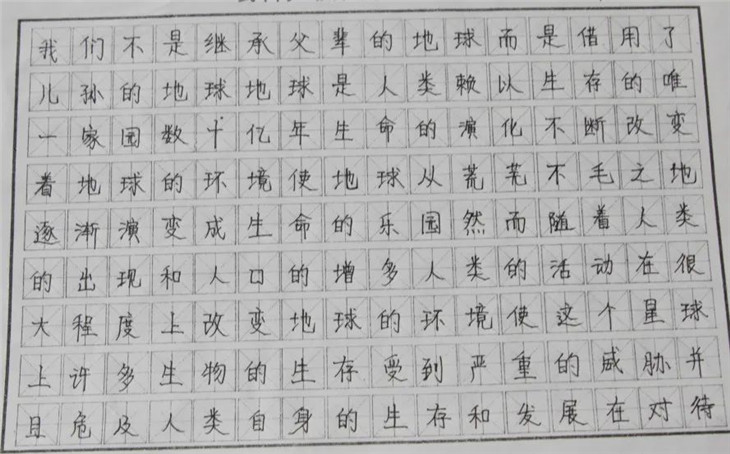 我们不是继承父辈的地球而是借用了
儿孙的地球地球是人类赖以生存的唯
一家园数十亿年生命的演化不断改变
着地球的环境使地球从荒芜不毛之地
逐渐演变成生命的乐园然而随着人类
的出现和人口的增多人类的活动在很
大程度上改变地球的环境使这个星球
上许多生物的生存受到严重的威胁并
且危及人类自身的生存和发展在对待